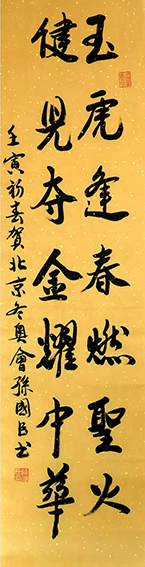 玉虎逢春燃聖火
健児夺金耀中華
壬寅初春賀北京冬奥會孫國臣书